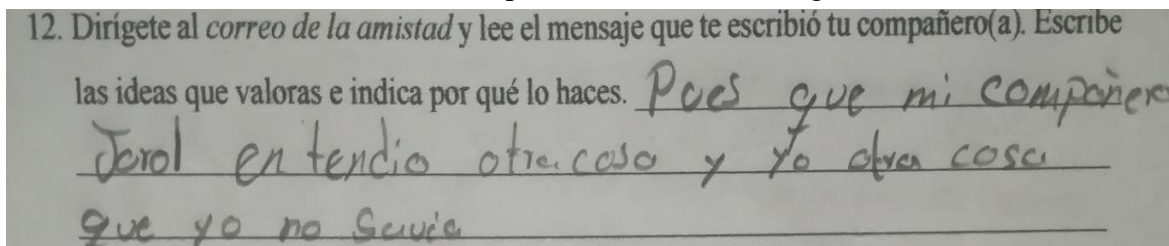 12. Dirígete al correo de la amistad y lee el mensaje que te escribió tu compañero(a). Escribe
las ideas que valoras e indica por qué lo haces. Pues que mi compañero
Jarol entendio otra cosa y yo otra cosa
que yo no savia